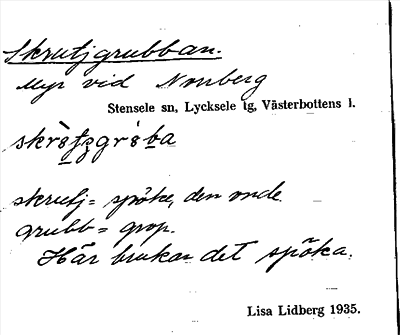 Skrutjgrubban.
Myr vid Norrberg
Stensele sn, Lycksele lg, Västerbottens l.
skrutj = spöke, den onde.
grubb = grop.
Här brukar det spöka.
Lisa Lidberg 1935.